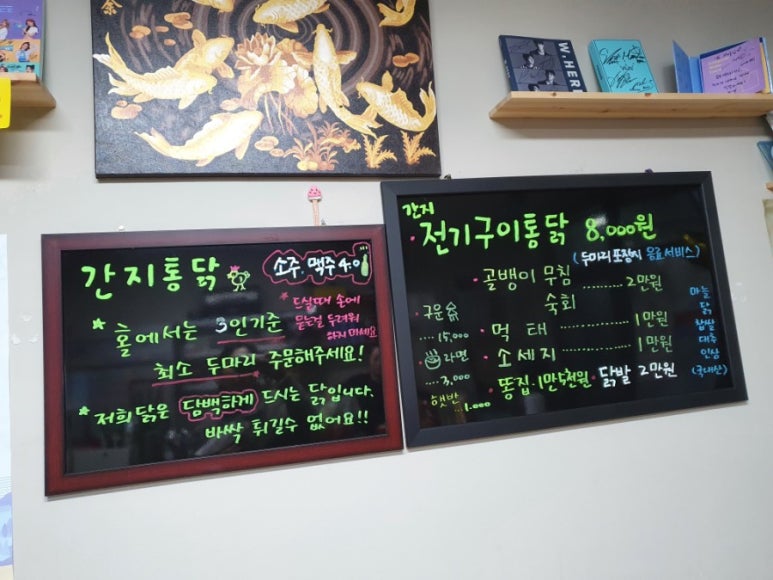 W.HERE
간지통닭
소주.맥주 4.0
* 드실때 손에
묻는걸 두려워
하지 마세요
* 홀에서는 3인기준
최소 두마리 주문해주세요!
* 저희닭은 담백하게 드시는 닭입니다.
바싹 튀길수 없어요!!
간지
· 전기구이통닭 8,000원
(두마리포장시 음료서비스)
· 골뱅이 무침 ......... 2만원
숙회
· 먹태 ............... 1만원
· 소세지 ............ 1만원
· 똥집·1만5천원 · 닭발 2만원
구운
.... 15,000
라면
.... 3,000
햇반
... 1.000
마늘
닭
찹쌀
대추
인삼
(국내산)